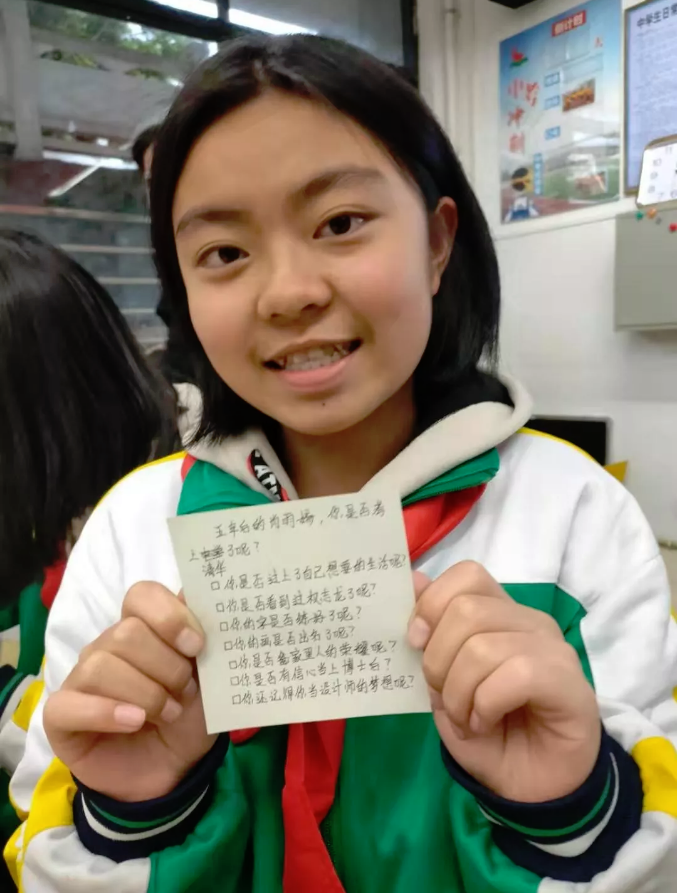 五年后的肖雨婷，你是否考
上了呢？
清华
□你是否过上了自己想要的生活呢？
□你是否看到过权志龙了呢？
□你的字是否练好了呢？
□你的画是否出名了呢？
□你是否是家里人的荣耀呢？
□你是否有信心当上博士后？
□你还记得你当设计师的梦想呢？
倒计时
小
冲
刺
中学生日常